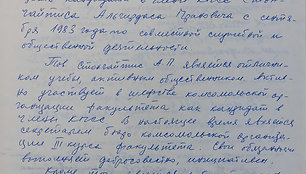 кандидата в члены КПСС Стон-
гайтиса Альгирдаса Прановича с сентя-
бря 1983 года по совместной служебной и
общественной деятельности
Тов Стонгайтис А.П. является отлични-
ком учебы, активным общественником. Актив-
но участвует в шефстве комсомольской ор-
ганизации факультета как кандидат в
члены КПСС В настоящее время является
секретарём бюро комсомольской организа-
ции III курса факультета. Свои обязаннос
выполняет добросовестно, инициативен.
Кроме